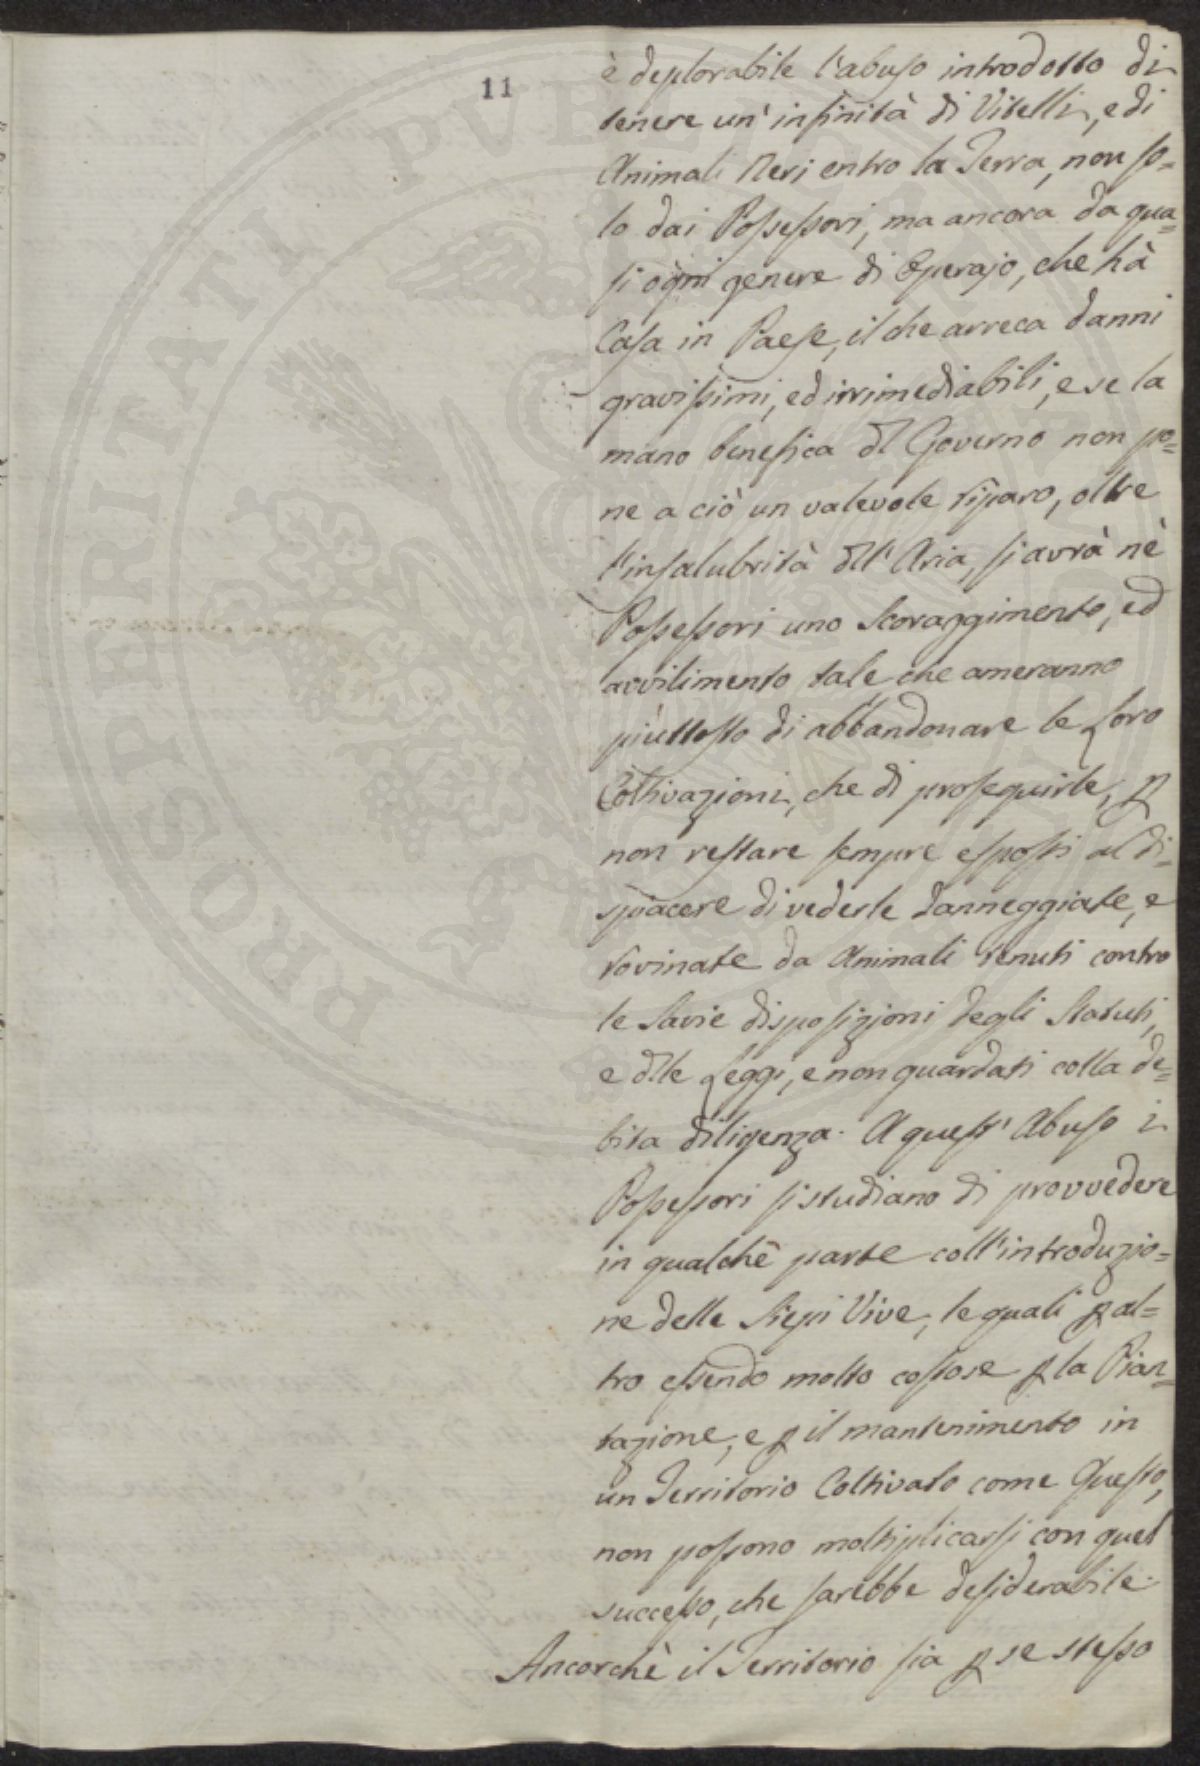 11
è deplorabile l'abuso introdotto di
tenere un' infinità di Vitelli, e di
Animali Neri entro la Terra, non so=
lo dai Possessori, ma ancora da qua=
si ògni genere di Operajo, che hà
Casa in Paese, il che arreca danni
gravissimi, ed irrimediabili, e se la
mano benefica dl Governo non po=
ne a ciò un valevole riparo, oltre
l'insalubrità dll' Aria, si avrà nè
Possessori uno Scoraggimento, ed
avvilimento tale che ameranno
piùttosto di abbandonare le Loro
Coltivazioni, che di proseguirle, p
non restare sempre esposti al di=
spiacere di vederle danneggiate, e
rovinate da Animali tenuti contro
le Savie disposizioni degli Statuti,
e dlle Leggi, e non guardati colla de=
bita diligenza. A quest' Abuso i
Possessori si studiano di provvedere
in qualchè parte coll'introduzio=
ne delle Siepi Vive, le quali p al=
tro essendo molto costose p la Pian=
tazione, e p il mantenimento in
un Territorio Coltivato come Questo,
non possono moltiplicarsi con quel
successo, che sarebbe desiderabile.
Ancorchè il Territorio sia p se stesso
PROSPERITATI PVBLICAE